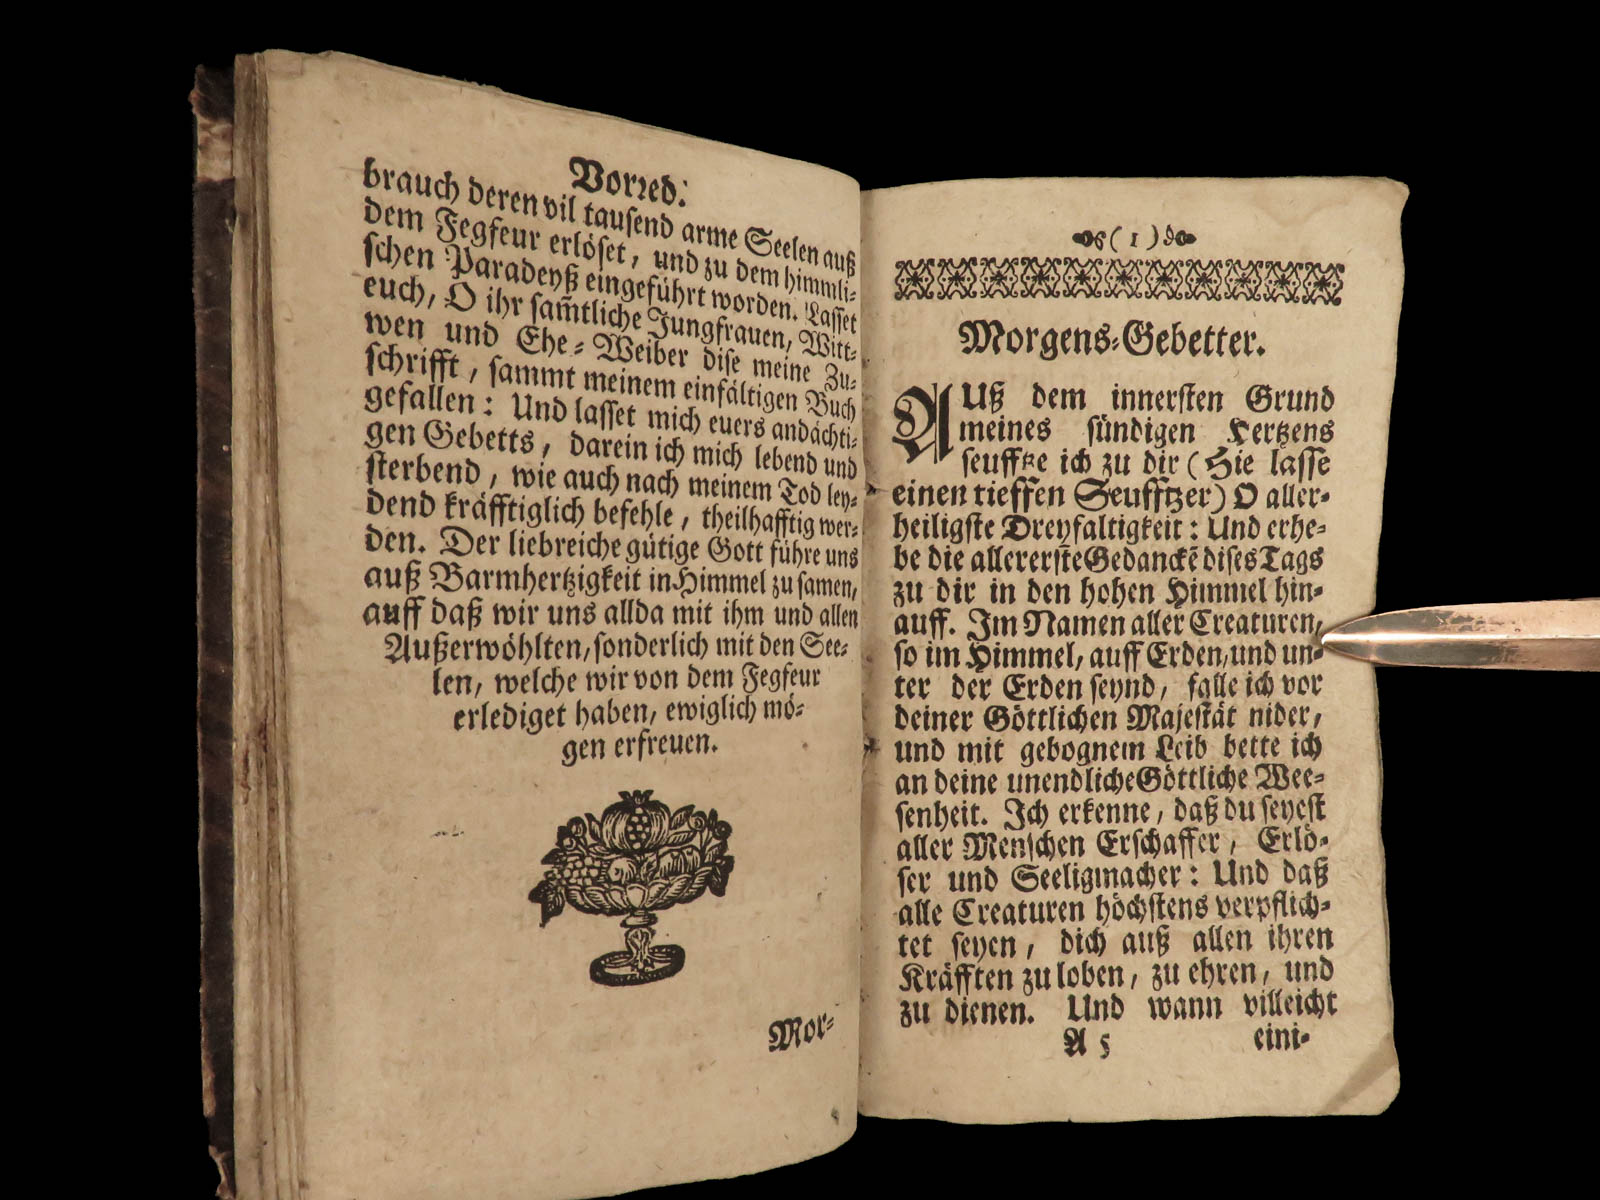 Vorred.
brauch deren vil tausend arme Seelen auß
dem Fegfeur erlöset, und zu dem himmli-
schen Paradeyß eingeführt worden. Lasset
euch, O ihr sam̃tliche Jungfrauen, Witt-
wen und Ehe-Weiber dise meine Zu-
schrifft, sammt meinem einfältigen Buch
gefallen: Und lasset mich euers andächti-
gen Gebetts, darein ich mich lebend und
sterbend, wie auch nach meinem Tod ley-
dend kräfftiglich befehle, theilhafftig wer-
den. Der liebreiche gütige Gott führe uns
auß Barmhertzigkeit in Himmel zusamen,
auff daß wir uns allda mit ihm und allen
Außerwöhlten, sonderlich mit den See-
len, welche wir von dem Fegfeur
erlediget haben, ewiglich mö-
gen erfreuen.
Mor-
(1)
Morgens-Gebetter.
AUß dem innersten Grund
meines sündigen Hertzens
seufftze ich zu dir (Hie lasse
einen tieffen Seufftzer) O aller-
heiligste Dreyfaltigkeit: Und erhe-
be die allererste Gedanckẽ dises Tags
zu dir in den hohen Himmel hin-
auff. Im Namen aller Creaturen,
so im Himmel, auff Erden, und un-
ter der Erden seynd, falle ich vor
deiner Göttlichen Majestät nider,
und mit gebognem Leib bette ich
an deine unendliche Göttliche Wee-
senheit. Ich erkenne, daß du seyest
aller Menschen Erschaffer, Erlö-
ser und Seeligmacher: Und daß
alle Creaturen höchstens verpflich-
tet seyen, dich auß allen ihren
Kräfften zu loben, zu ehren, und
zu dienen. Und wann villeicht
A 5 eini-